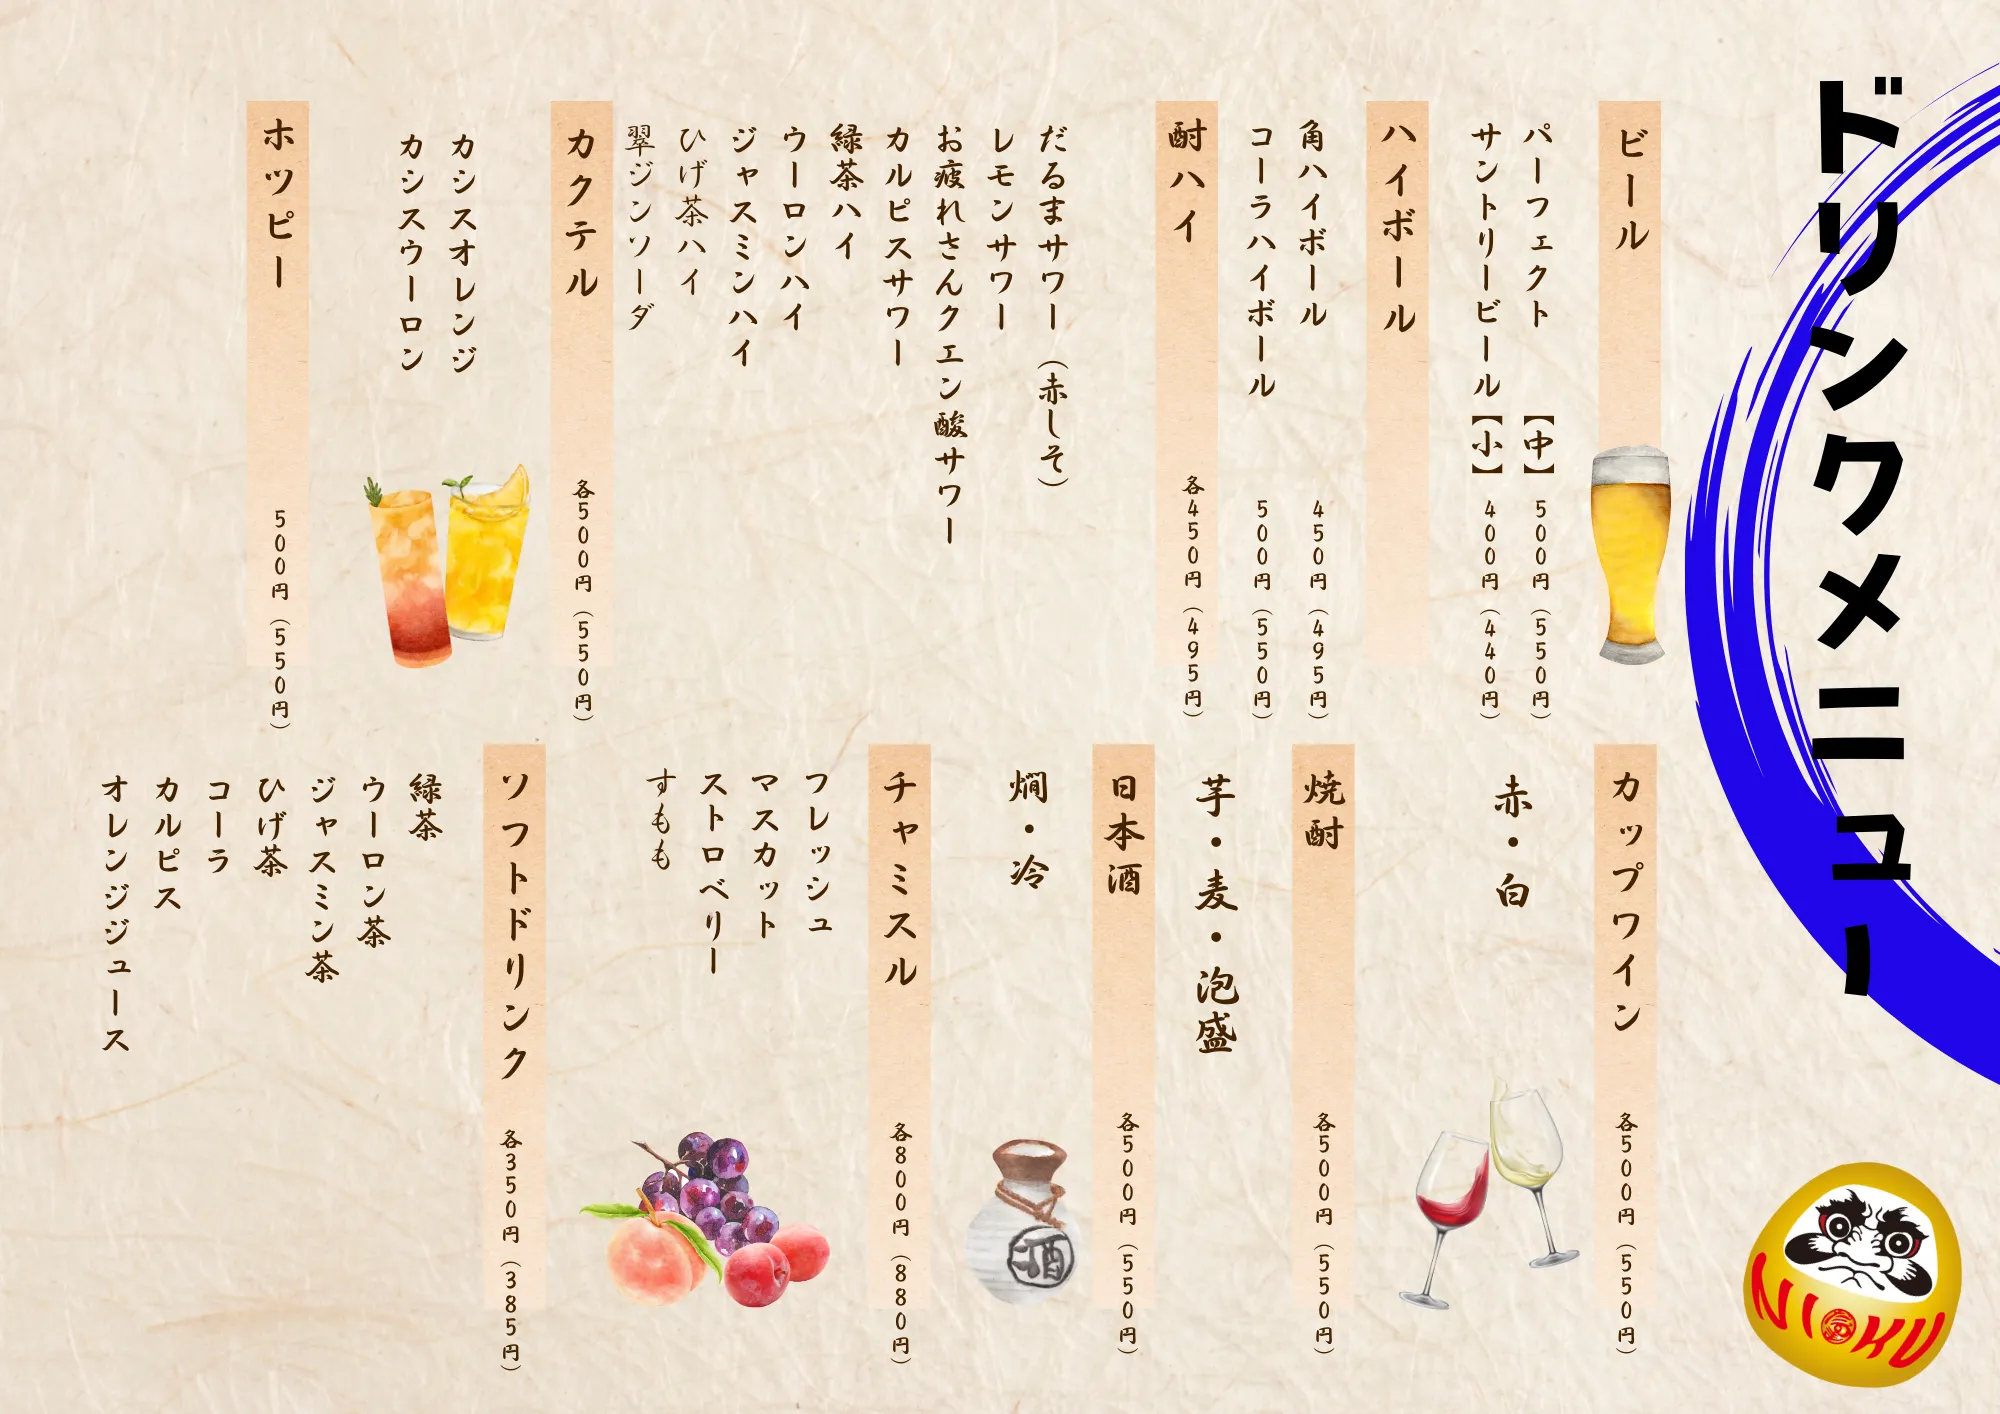 ドリンクメニュー
ビール
パーフェクト【中】 500円（550円）
サントリービール【小】 400円（440円）
ハイボール
角ハイボール 450円（495円）
コーラハイボール 500円（550円）
酎ハイ 各450円（495円）
だるまサワー（赤しそ）
レモンサワー
お疲れさんクエン酸サワー
カルピスサワー
緑茶ハイ
ウーロンハイ
ジャスミンハイ
ひげ茶ハイ
翠ジンソーダ
カクテル 各500円（550円）
カシスオレンジ
カシスウーロン
ホッピー 500円（550円）
カップワイン 各500円（550円）
赤・白
焼酎 各500円（550円）
芋・麦・泡盛
日本酒 各500円（550円）
燗・冷
酒
チャミスル 各800円（880円）
フレッシュ
マスカット
ストロベリー
すもも
ソフトドリンク 各350円（385円）
緑茶
ウーロン茶
ジャスミン茶
ひげ茶
コーラ
カルピス
オレンジジュース
NIKU